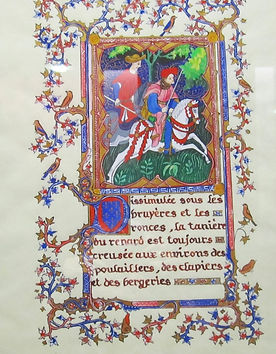 Dissimulée sous les
bruyères et les
ronces, la tanière
du renard est toujours
creusée aux environs des
poulaillers, des clapiers
et des bergeries